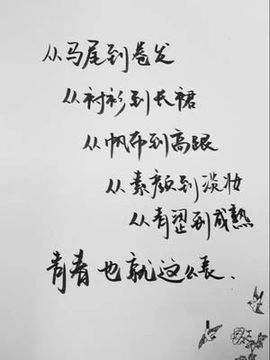 从马尾到卷发
从衬衫到长裙
从帆布到高跟
从素颜到淡妆
从青涩到成熟
青春也就这么长.